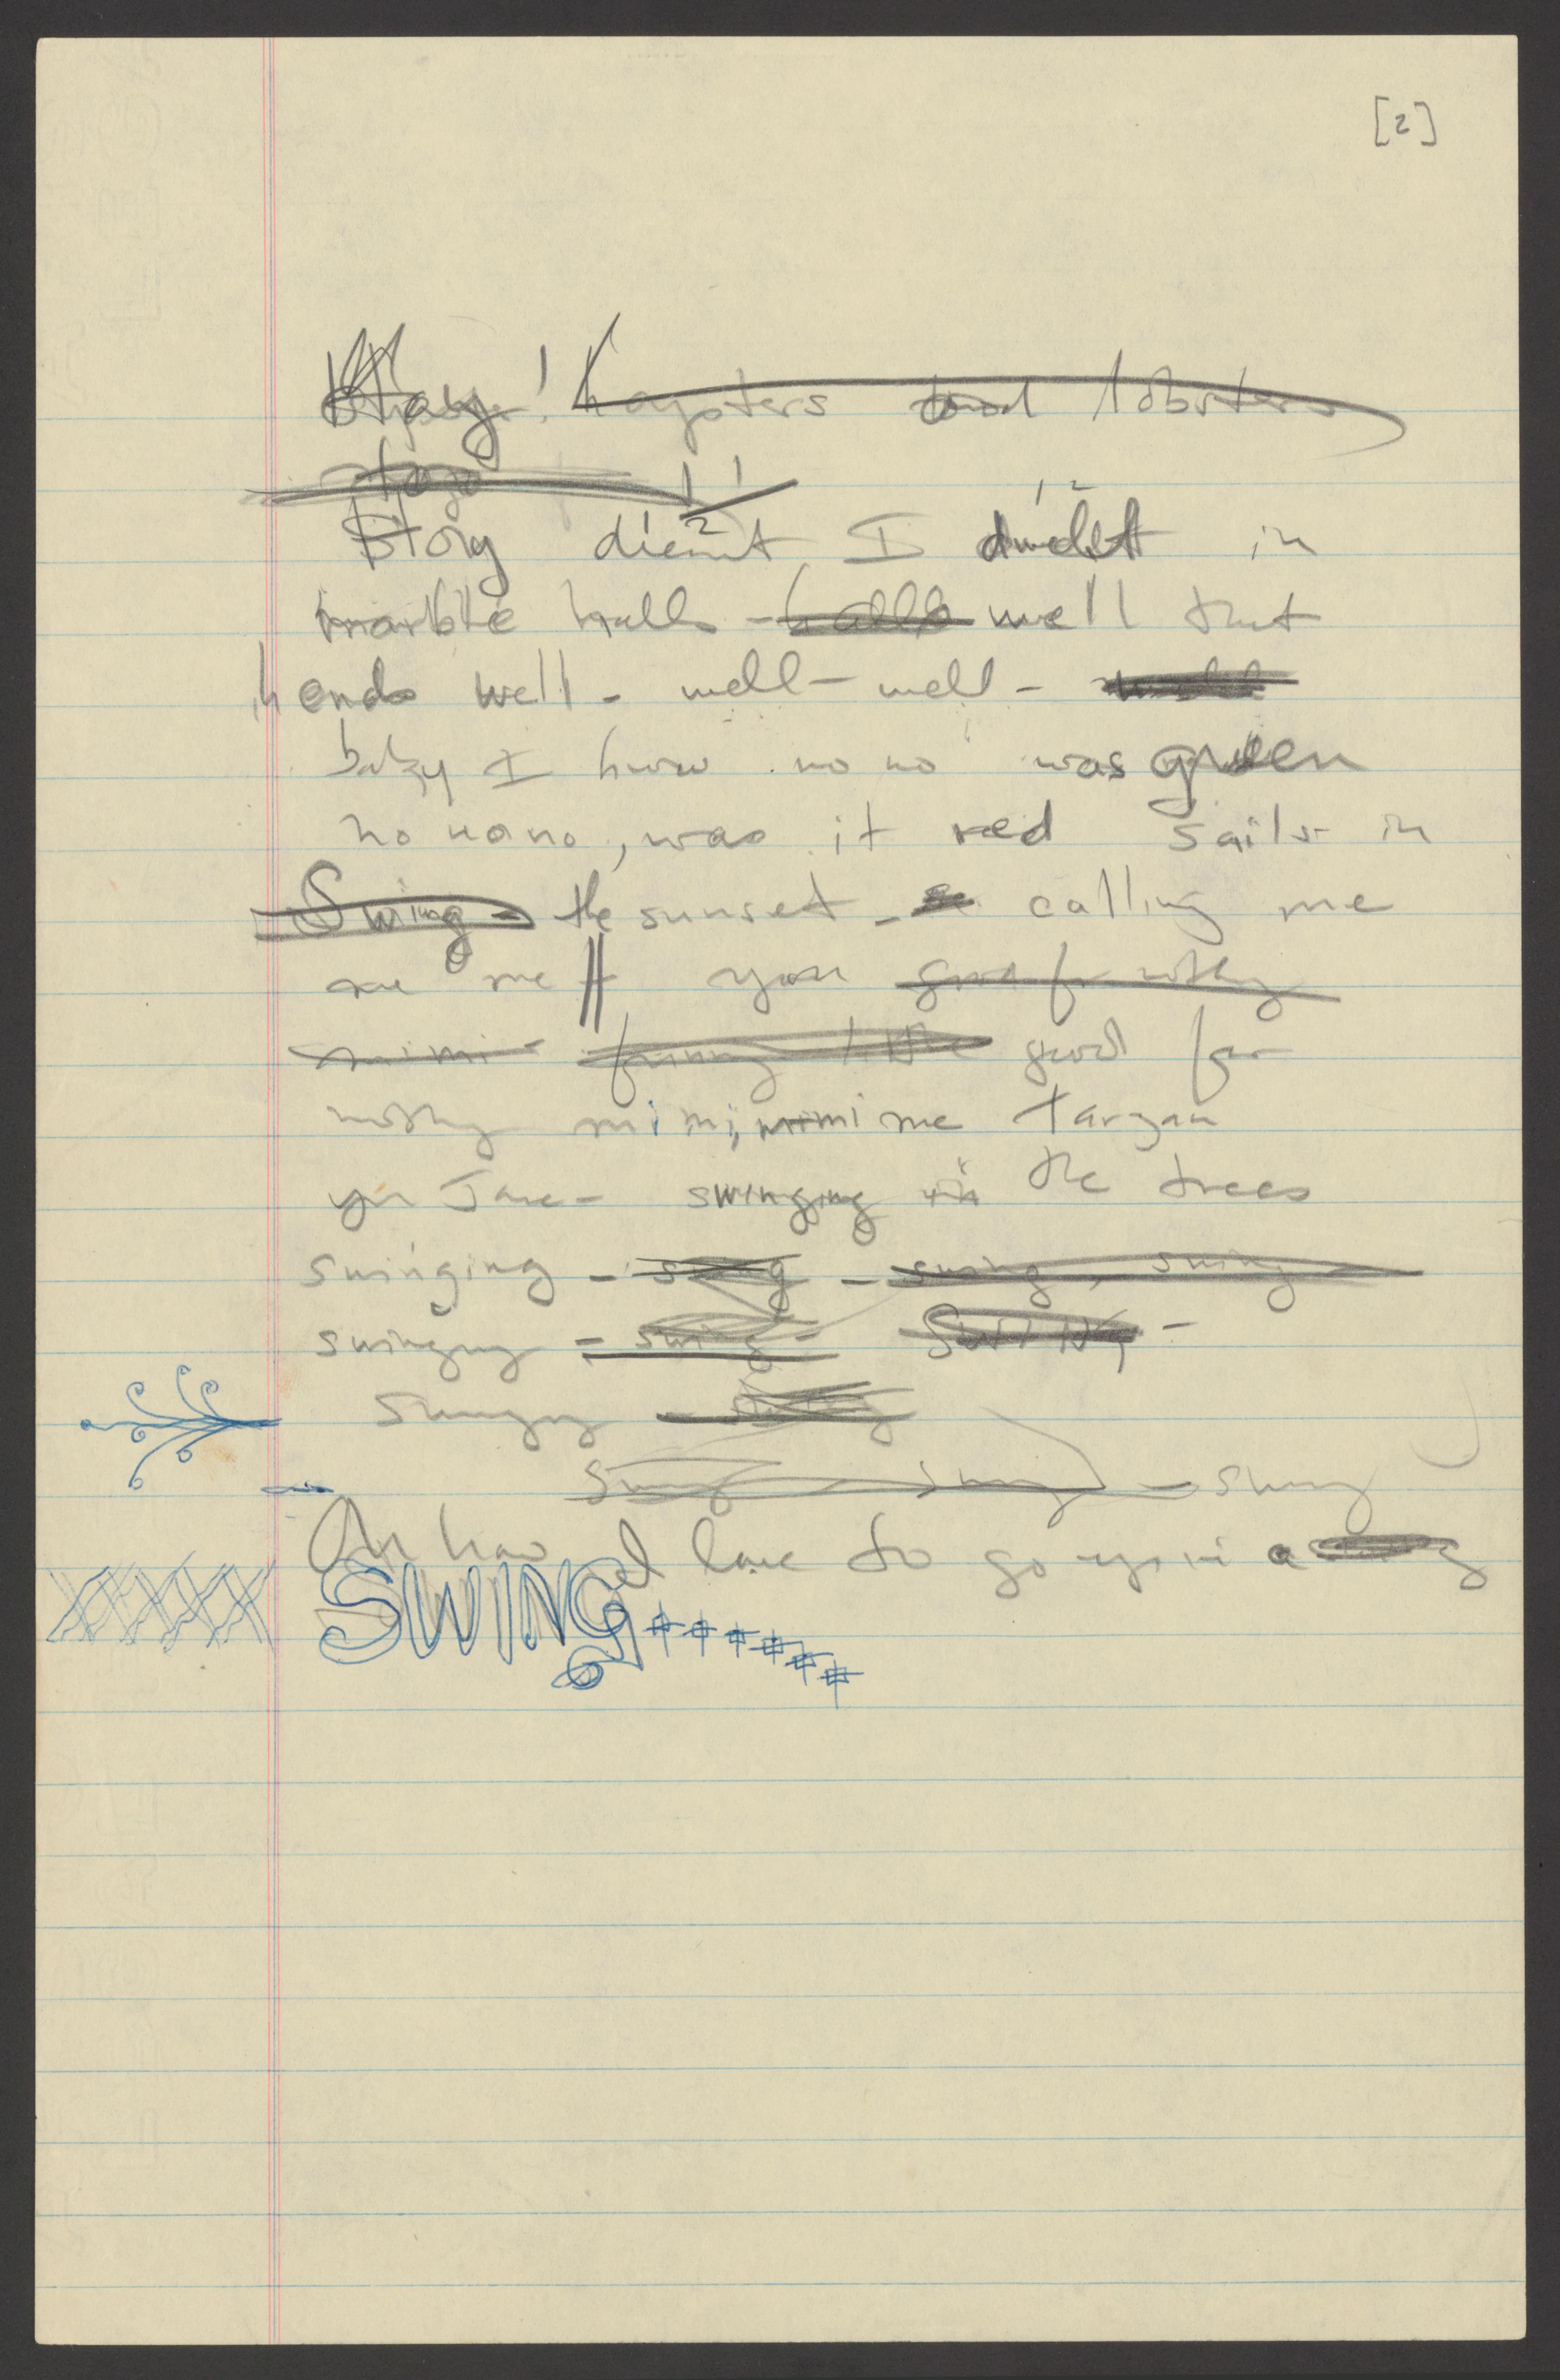 [2]
haysters and lobsters
Story I dwelt in
marble halls - halls well that
ends well - well - well -
baby I how no no was green
no no no, was it red sails in
Swing - the sunset - calling me
me me you good for nothing
mimi - funny little good for
nothing mimi, mimi me Tarzan
you Jane - swinging in the trees
swinging - swing - swing, swing
swinging - swing - Swing -
swinging
swing swing - swing
Oh how I love to go up in a
SWING